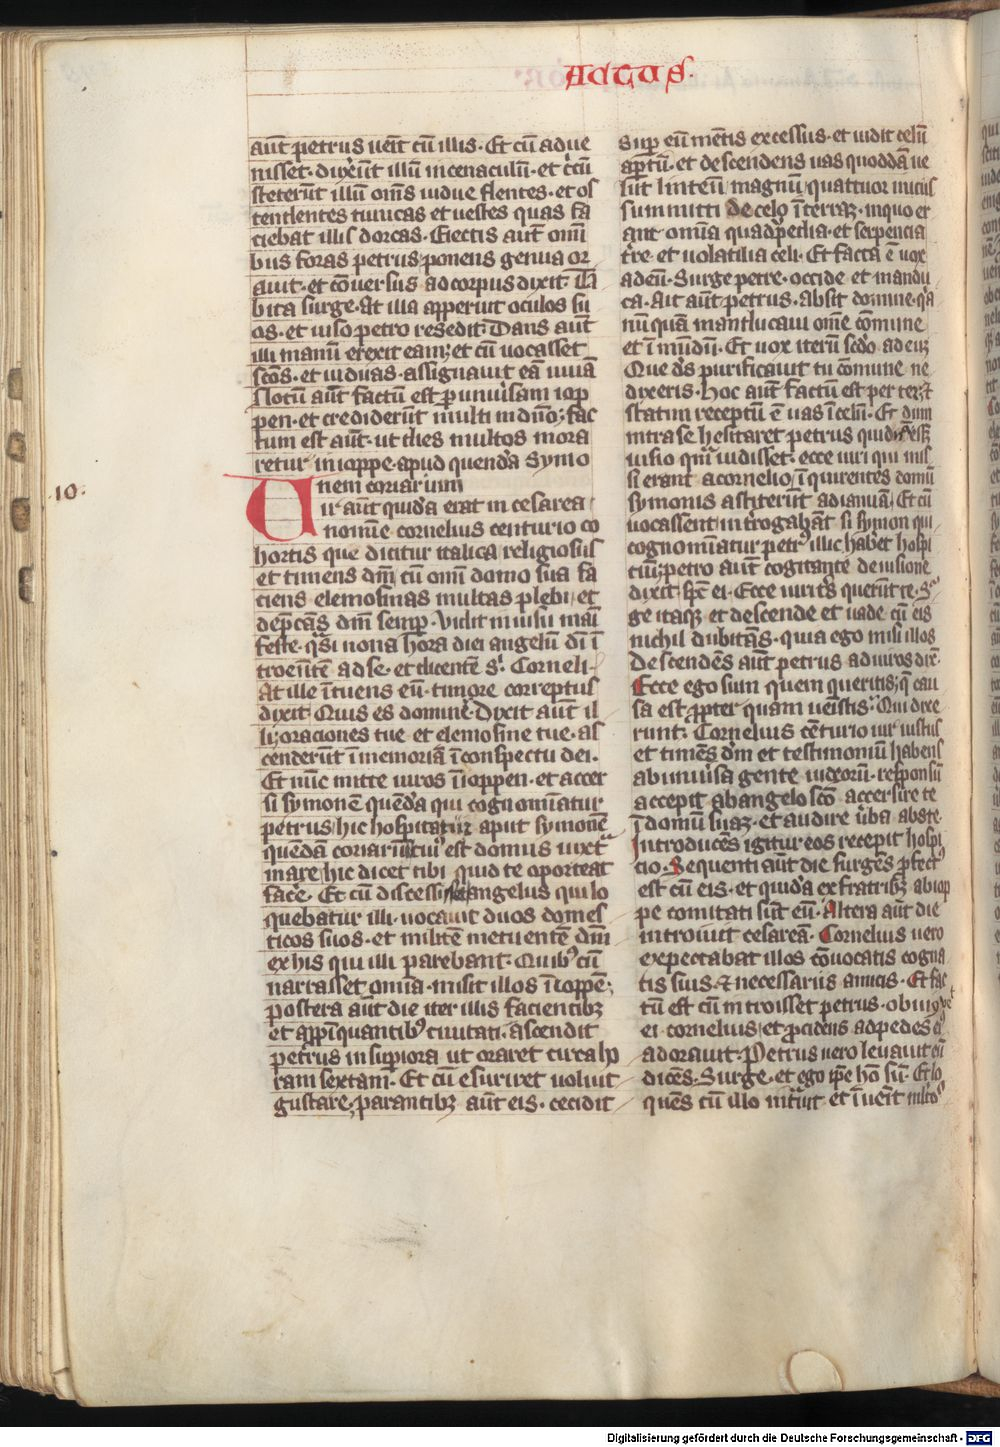 Actus.
aūt petrus ueīt cū illis. Et cū aduē
nisset. duxer̄ūt illū in cenaculū. et c̄cū
steterūt illū om̄s uidue flentes. et os
tendentes tunicas et uestes quas fa
ciebat illis dorcas. Eiectis aūt om̄i
bus foras petrus ponens genua or
auit. et cōuersus ad corpus dixit. Ta
bita surge. At illa apperuit oculos su
os. et uiso petro resedit. Dans aūt
illi manū erexit eam; et cū uocasset
sc̄os. et uiduas. assignauit eā uiuā
Notū aūt factū est p uniūsam iop
pen. et crediderūt multi in dn̄o; fac
tum est aūt. ut dies multos mora
retur in ioppe. apud quendā Symo
nem coriarium
10.
Uir aūt quidā erat in cesarea
nomīe cornelius centurio co
hortis que dicitur italica religiosus
et timens dm̄ cū om̄i domo sua fa
ciens elemosinas multas plebi et
dep̄cās dm̄ semp. Vidit in uisu mai
feste. qͣsi nona hora diei angelū di ī
troeūtē ad se. et dicentē sͥ. Corneli.
At ille ītuens eū. timore correptus
dixit. Quis es domine. Dixit aūt il
li; oraciones tue et elemosine tue. as
cenderūt ī memoriā ī conspectu dei.
Et nūc mitte uiros ī ioppen. et accer
si symonē quēdā qui cognomīatur
petrus; hic hospitatur aput symonē
quēdam coriariū cuiꝰ est domus iuxtͣ
mare; hic dicet tibi quid te oporteat
facē. Et cū discessisset angelus qui lo
quebatur illi. uocauit duos domes
ticos suos. et militē metuentē dm̄
ex his qui illi parebant. Quibꝰ cū
narrasset om̄ia. misit illos ī ioppē;
postera aūt die iter illis facientibꝫ
et appīquantibꝰ ciuitati. ascendit
petrus in supiora ut oraret circa ho
ram sextam. Et cū esuriret uoluit
gustare; parantibꝫ aūt eis. cecidit
sup eū mētis excessus. et uidit celū
aptū. et descendens uas quoddā ue
lut linteū magnū quattuor iniciis
summitti de celo ī terraꝫ. in quo er
ant om̄ia quadpedia. et serpencia
tr̄e. et uolatilia celi. Et facta ē uox
ad eū. Surge petre. occide et mandu
ca. Ait aūt petrus. absit domine. qͥa
nūquā manducaui om̄e cōmune
et ī mūdū. Et uox iterū scd̄o ad euꝫ
Que ds̄ purificauit tu cōmune ne
dixeris. Hoc aūt factū est per ter; et
statim receptū ē uas ī celū. Et dum
intra se hesitaret petrus quidnā esꝫ
uisio qm̄ uidisset. ecce uiri qui mis
si erant a cornelio, īquirentes domū
symonis astiterūt ad ianuā. Et cū
uocassent introgabāt si symon qui
cognomīatur petrꝰ illic habet hospi
ciū; petro aūt cogitante de uisione
dixit sp̄c ei. Ecce uiri tres querūt te. Sͬ
ge itaqꝫ et descende et uade cū eis
nichil dubitās. quia ego misi illos
Descendēs aūt petrus ad uiros dix̄.
Ecce ego sum quem queritis; q̄ cau
sa est ppter quam ueīstis. Qui dixe
runt. Cornelius cēturio uir iustus
et timēs dm̄ et testimoniū habens
ab uniūsa gente iudeorū. responsū
accepit ab angelo sc̄o accersire te
ī domū suaꝫ. et audire ūba abs te.
Introducēs igitur eos recepit hospi
cio. Sequenti aūt die surgēs p̄fectꝰ
est cū eis. et quidā ex fratribꝫ ab iop
pe comitati sūt eū. Altera aūt die
introiuit cesareā. Cornelius uero
expectabat illos cōuocatis cogna
tis suis. et necessariis amicis. Et fac
tū est cū introisset petrus. obuiꝰ ue͛t
ei cornelius; et pcidens ad pedes eiꝰ
adorauit. Petrus uero leuauit eū
dicēs. Surge. et ego ip̄e hō sū. Et lo
quēs cū illo intͣuit et īueīt mltoˢ
Digitalisierung gefördert durch die Deutsche Forschungsgemeinschaft - DFG